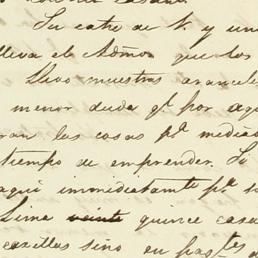 Su catre de V. y un
lleva el Admor que los
Llevo muestras arancele
menor duda qe por aqu
ran las cosas pa media
tiempo de emprender. Su
aqui inmediatamte pa so
Lima veinte quince casa
cazillas sino en fras